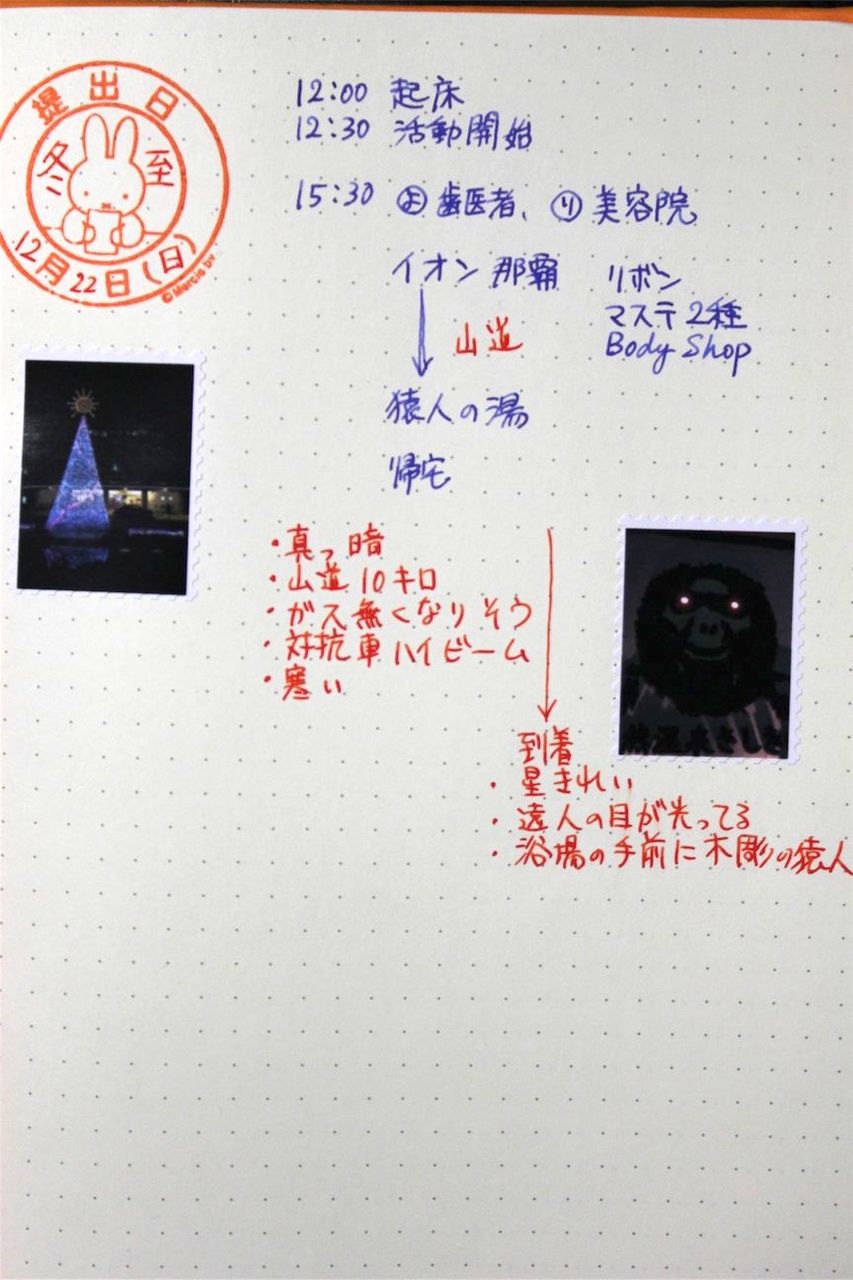 提出日
冬至
12月22日(日)
© Mercis bv
12:00 起床
12:30 活動開始
15:30 ㋵歯医者、㋷美容院
イオン那覇 リボン
マステ2種
Body Shop
山道
猿人の湯
帰宅
・真っ暗
・山道10キロ
・ガス無くなりそう
・対抗車ハイビーム
・寒い
到着
・星きれい
・遠人の目が光ってる
・浴場の手前に木彫の猿人